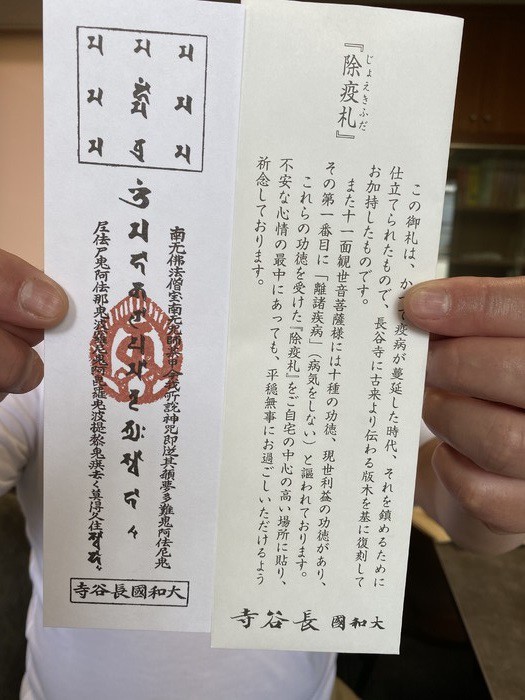 『除疫札』
じょえきふだ
この御札は、かつて疫病が蔓延した時代、それを鎮めるために
仕立てられたもので、長谷寺に古来より伝わる版木を基に復刻して
お加持したものです。
また十一面観世音菩薩様には十種の功徳、現世利益の功徳があり、
その第一番目に「離諸疾病」（病気をしない）と謳われております。
これらの功徳を受けた『除疫札』をご自宅の中心の高い場所に貼り、
不安な心情の最中にあっても、平穏無事にお過ごしいただけるよう
祈念しております。
大和國 長谷寺
南无佛法僧宝南无
所説神咒即逆其願夢多難鬼阿佉尼鬼
尼佉尸鬼阿佉那鬼波羅
鬼阿毘羅鬼波提黎鬼
大和國長谷寺